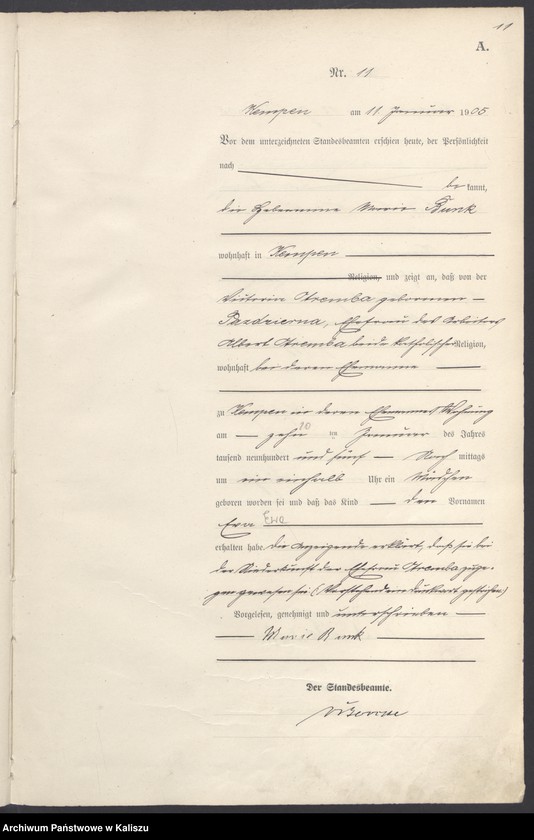 11
A.
Nr. 11
Kempen am 11 Januar 1905
Vor dem unterzeichneten Standesbeamten erschien heute, der Persönlichkeit
nach
be kannt,
die Hebamme Marie Bunk
wohnhaft in Kempen
Religion, und zeigt an, daß von der
Victoria Tremba geborenen
Pazdzierna, Ehefrau des Arbeiters
Albert Tremba beide katholischer Religion,
wohnhaft bei deren Ehemanne
zu Kempen in deren Ehemannes Wohnung
am zehn 10 ten Januar des Jahres
tausend neunhundert und fünf Nach mittags
um ein einhalb Uhr ein Mädchen
geboren worden sei und daß das Kind den Vornamen
Eva Ewa
erhalten habe. die Anzeigende erklärt, daß sie bei
der Niederkunft der Ehefrau Tremba zuge-
gen gewesen sei (Vorstehend ein Druckwort gestrichen)
Vorgelesen, genehmigt und unterschrieben
Marie Bunk
Der Standesbeamte.
Archiwum Państwowe w Kaliszu